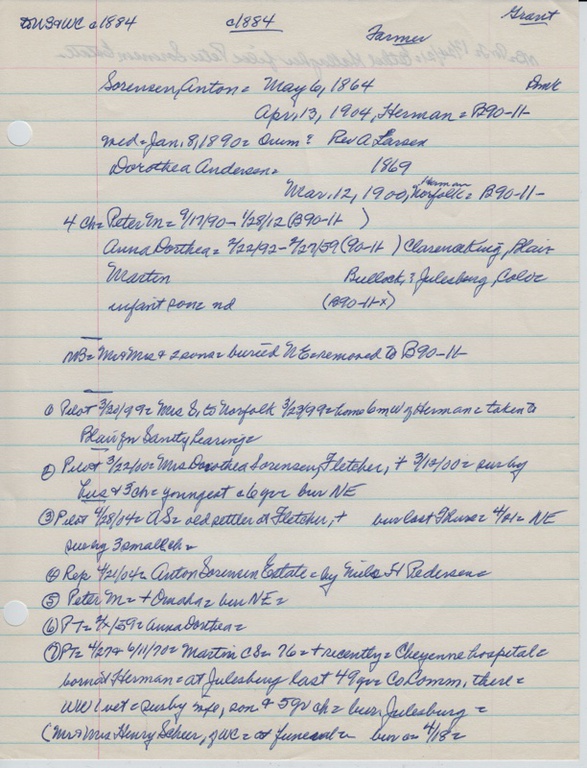 DUS&WC c1884 c1884 Grant
Farmer
Sorensen, Anton = May 6, 1864 Dmk
Apr, 13, 1904, Herman = B90-11-
md = Jan, 8, 1890 = Orum & Rev A Larsen
Dorothea Anderson = 1869
Mar. 12, 1900, Herman Norfolk = B90-11-
4 ch = Peter M = 9/17/90 - 1/28/12 (B90-11- )
Anna Dorthea = 2/22/92 - 2/27/59 (90-11- ) Clarence King, Blair
Martin Bullock, & Julesburg, Colo =
infant son = nd (B90-11-x)
NB = Mr & Mrs & 2 sons = buried NE = removed to B90-11-
① Pilot 3/30/99 = Mrs S, to Norfolk 3/23/99 = home 6 m W of Herman = taken to
Blair for Sanity hearing =
② Pilot 3/22/00 = Mrs Dorothea Sorensen, Fletcher, + 3/12/00 = sur by
hus & 3 ch = youngest c 6 yr = bur NE
③ Pilot 4/28/04 = AS = old settler at Fletcher, + bur last Thurs = 4/21 = NE
sur by 3 small ch =
④ Rep 4/21/04 = Anton Sorensen Estate = by Niels H Pedersen =
⑤ Peter M = + Omaha = bur NE =
⑥ PT = /59 = Anna Dorthea =
⑦ PT = 4/27 & 6/11/70 = Martin C S = 76 = + recently = Cheyenne hospital =
born at Herman = at Julesburg last 49 yr = Co Comm, there =
WW 1 vet = sur by wife, son & 5 gr ch = bur Julesburg =
(Mr & Mrs Henry Scheer, of WC = at funeral = bur on 4/18 =